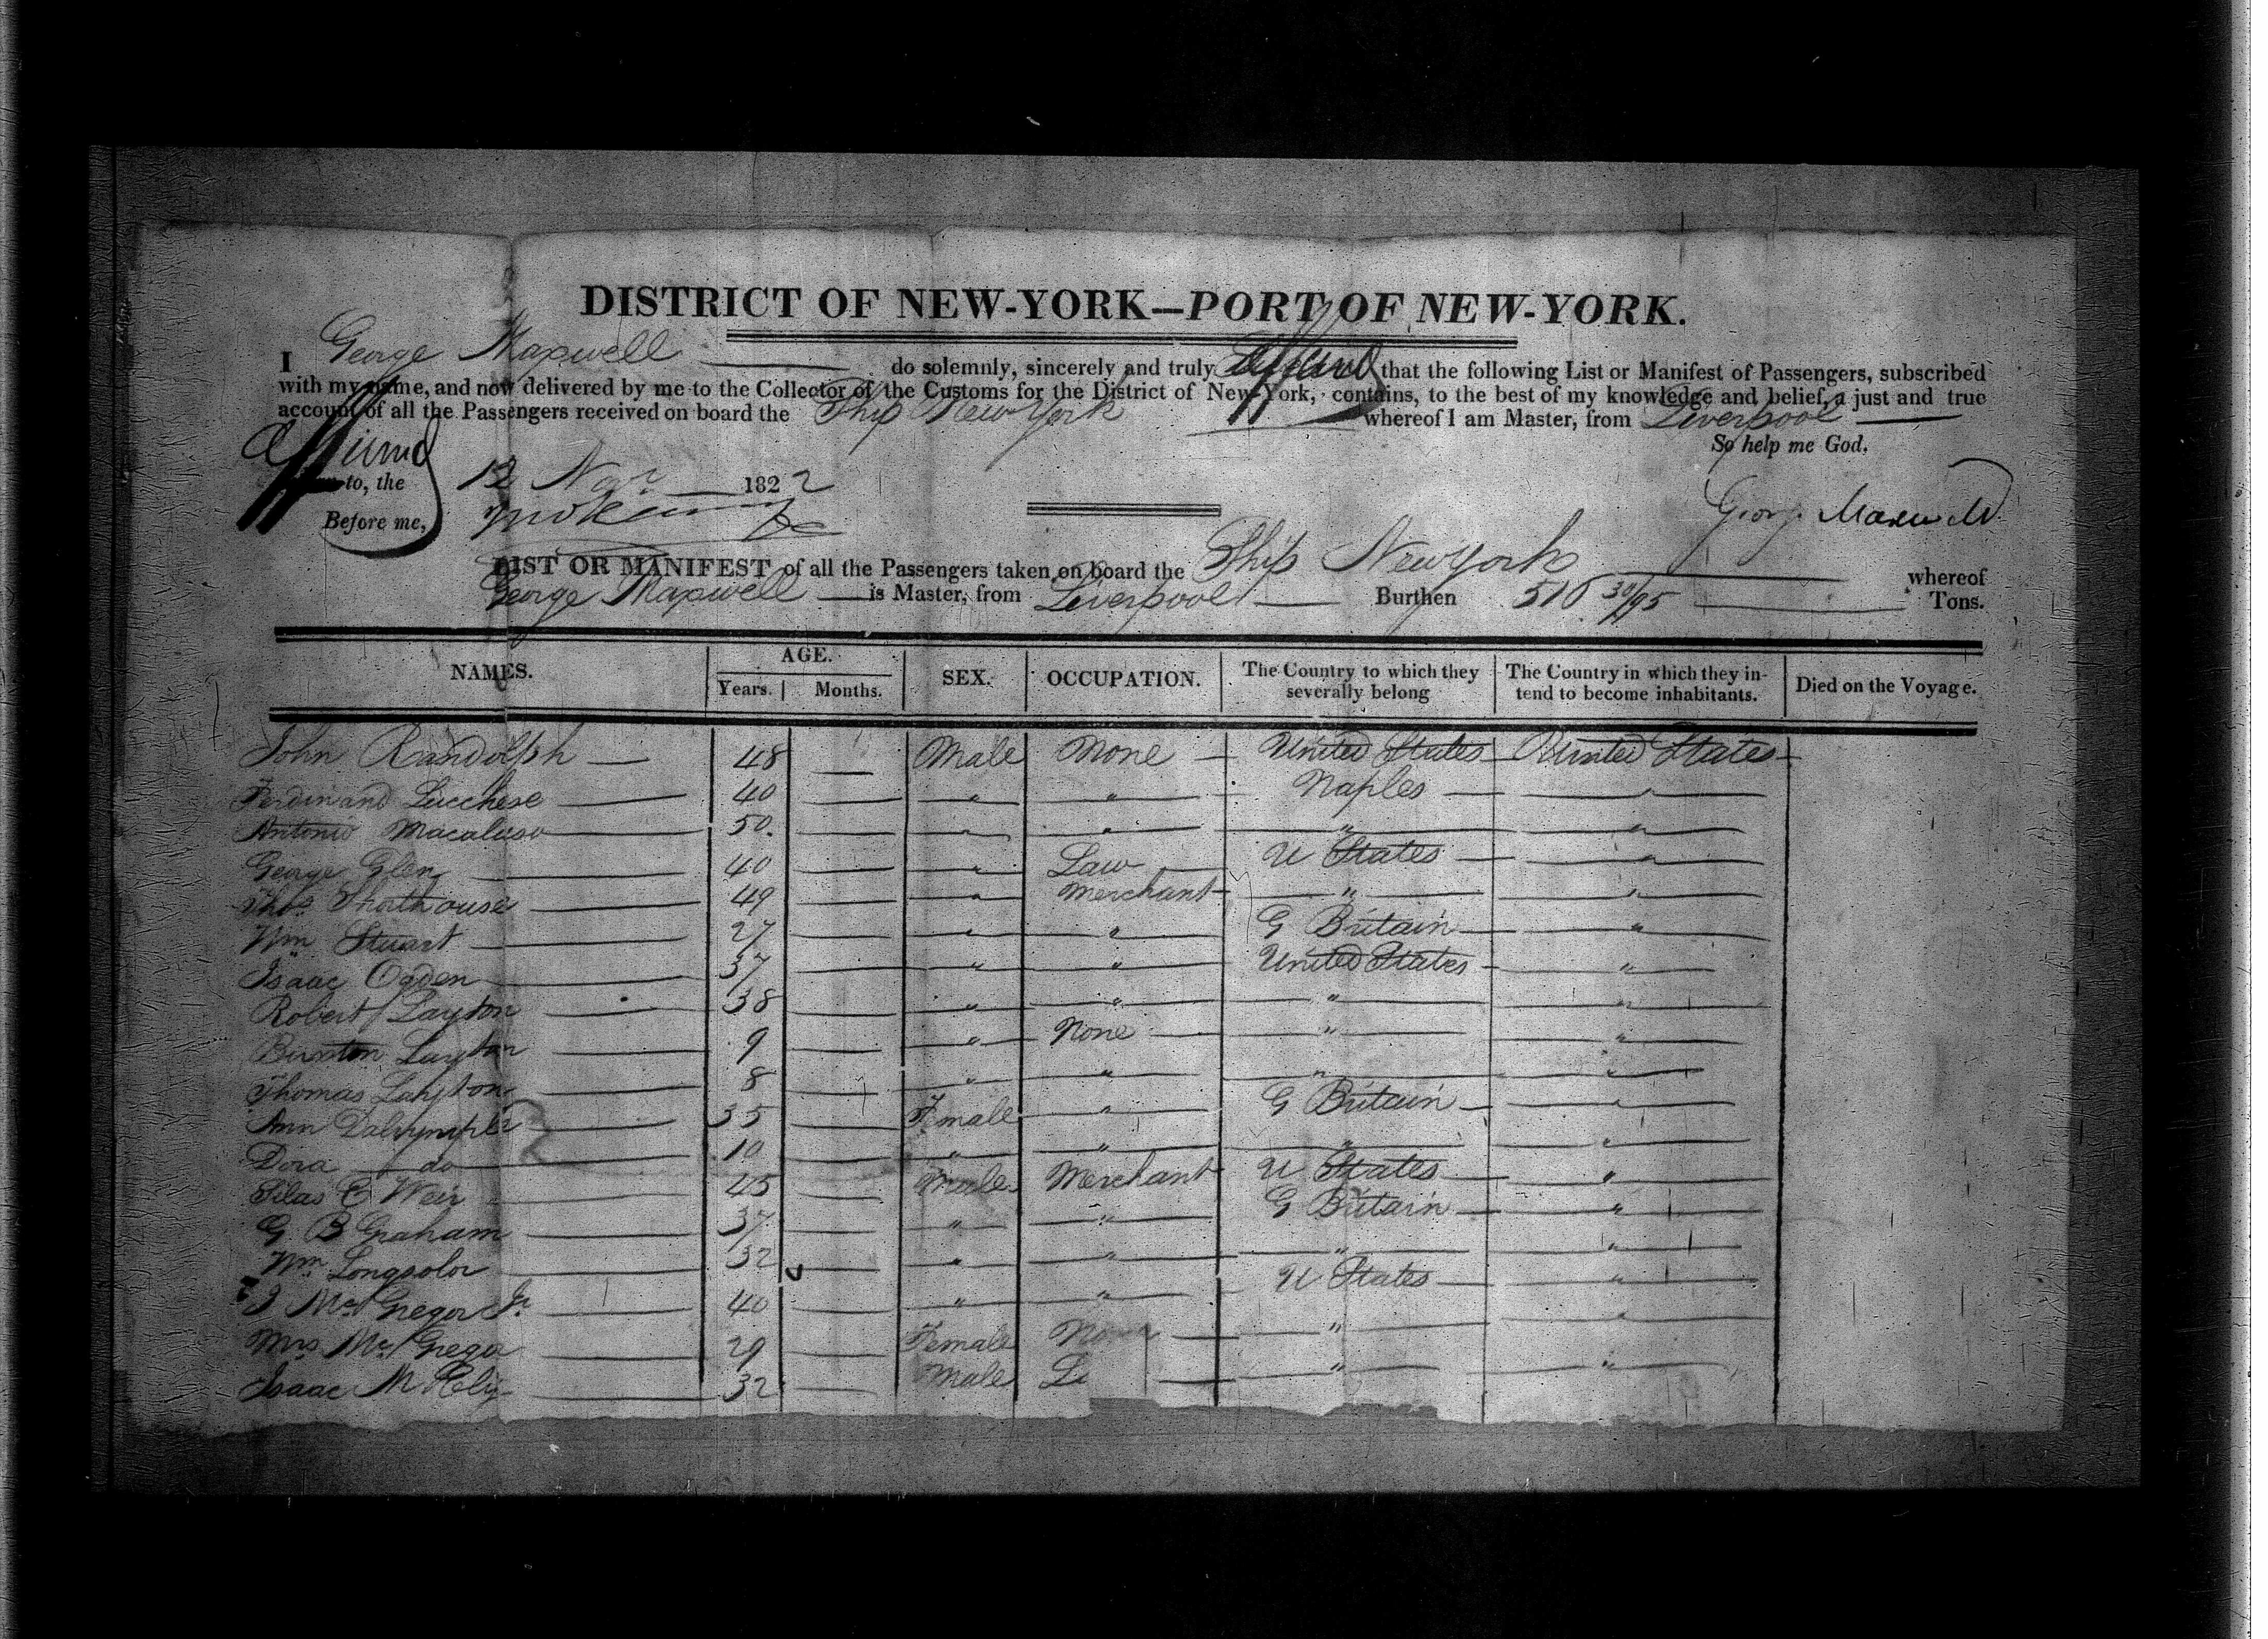 DISTRICT OF NEW-YORK—PORT OF NEW-YORK.
I George Maxwell do solemnly, sincerely and truly affirm that the following List or Manifest of Passengers, subscribed
with my name, and now delivered by me to the Collector of the Customs for the District of New-York, contains, to the best of my knowledge and belief, a just and true
account of all the Passengers received on board the Ship New York whereof I am Master, from Liverpool
So help me God.
Affirmd to, the 12 Nov 1822
Before me,
George Maxwell
LIST OR MANIFEST of all the Passengers taken on board the Ship New York whereof
George Maxwell is Master, from Liverpool Burthen 516 30/95 Tons.
NAMES. AGE. SEX. OCCUPATION. The Country to which they severally belong The Country in which they intend to become inhabitants. Died on the Voyage.
Years. Months.
John Randolph 48 Male None United States United States
Ferdinand Lucchese 40 " " Naples "
Antonio Macaluso 50. " " " "
George Glen 40 " Law U States "
Thos Shorthouse 49 " Merchant " "
Wm Stuart 27 " " G Britain "
Isaac Ogden 37 " " United States "
Robert Layton 38 " " " "
Buxton Layton 9 " None " "
Thomas Layton 8 " " " "
Ann Dalrymple 35 Female " G Britain "
Dora do 10 " " " "
Silas E Weir 45 Male Merchant U States "
G B Graham 37 " " G Britain "
Wm 32 " " " "
J McGregor Jr 40 " " U States "
Mrs McGregor 29 Female None " "
Isaac M 32 Male " "